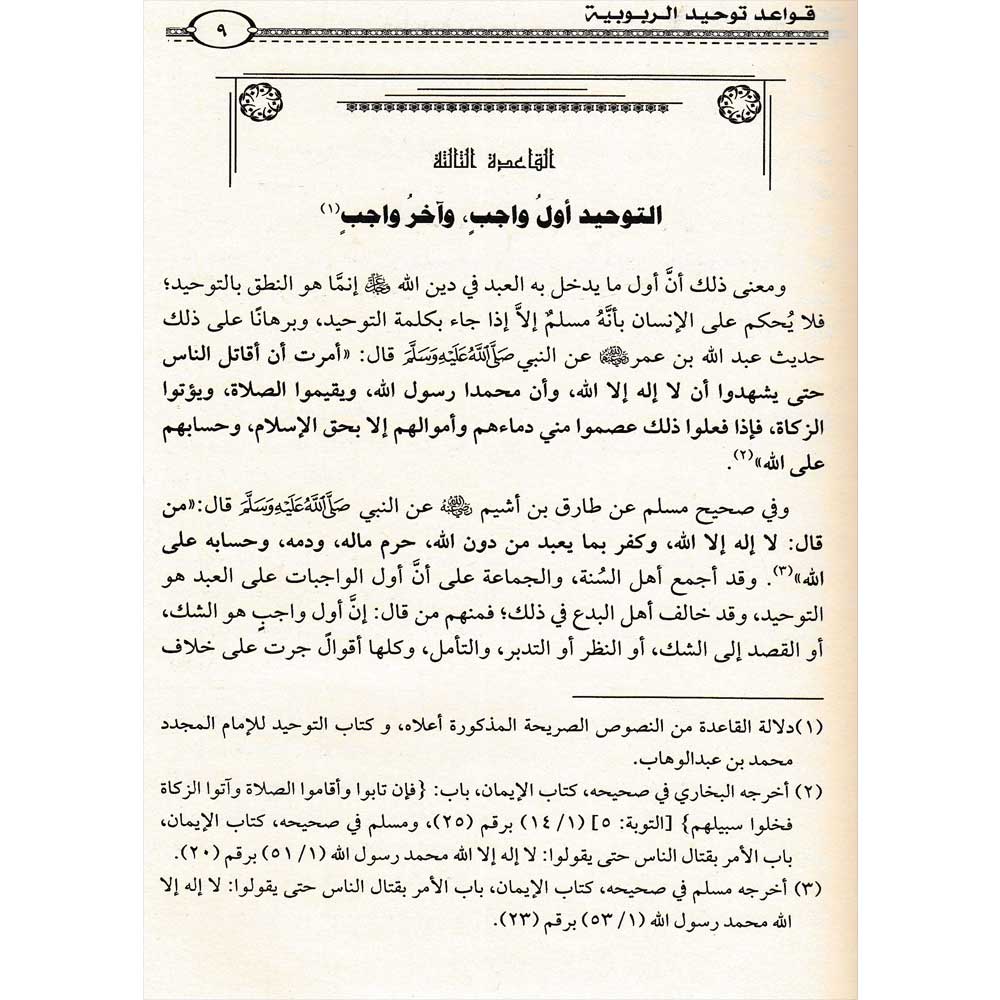 قواعد توحيد الربوبية
٩
القاعدة الثالثة
التوحيد أولُ واجبٍ، وآخرُ واجبٍ(١)
ومعنى ذلك أنَّ أول ما يدخل به العبد في دين الله ﷻ إنمَّا هو النطق بالتوحيد؛
فلا يُحكم على الإنسان بأنَّهُ مسلمٌ إلاَّ إذا جاء بكلمة التوحيد، وبرهانًا على ذلك
حديث عبد الله بن عمر رضي الله عنهما عن النبي صَلَّى اللَّهُ عَلَيْهِ وَسَلَّمَ قال: «أمرت أن أقاتل الناس
حتى يشهدوا أن لا إله إلا الله، وأن محمدا رسول الله، ويقيموا الصلاة، ويؤتوا
الزكاة، فإذا فعلوا ذلك عصموا مني دماءهم وأموالهم إلا بحق الإسلام، وحسابهم
على الله»(٢).
وفي صحيح مسلم عن طارق بن أشيم رضي الله عنه عن النبي صَلَّى اللَّهُ عَلَيْهِ وَسَلَّمَ قال:«من
قال: لا إله إلا الله، وكفر بما يعبد من دون الله، حرم ماله، ودمه، وحسابه على
الله»(٣). وقد أجمع أهل السُنة، والجماعة على أنَّ أول الواجبات على العبد هو
التوحيد، وقد خالف أهل البدع في ذلك؛ فمنهم من قال: إنَّ أول واجبٍ هو الشك،
أو القصد إلى الشك، أو النظر أو التدبر، والتأمل، وكلها أقوالٌ جرت على خلاف
(١)دلالة القاعدة من النصوص الصريحة المذكورة أعلاه، و كتاب التوحيد للإمام المجدد
محمد بن عبدالوهاب.
(٢) أخرجه البخاري في صحيحه، كتاب الإيمان، باب: {فإن تابوا وأقاموا الصلاة وآتوا الزكاة
فخلوا سبيلهم} [التوبة: ٥] (١/ ١٤) برقم (٢٥)، ومسلم في صحيحه، كتاب الإيمان،
باب الأمر بقتال الناس حتى يقولوا: لا إله إلا الله محمد رسول الله (١/ ٥١) برقم (٢٠).
(٣) أخرجه مسلم في صحيحه، كتاب الإيمان، باب الأمر بقتال الناس حتى يقولوا: لا إله إلا
الله محمد رسول الله (١/ ٥٣) برقم (٢٣).